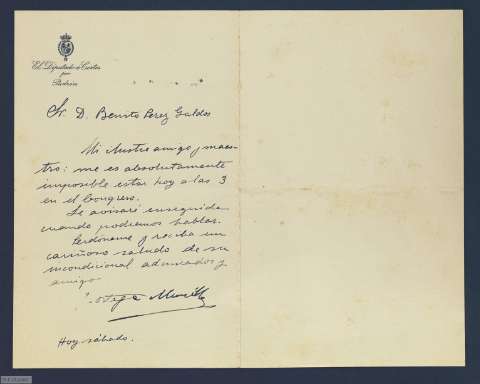 El Diputado a Cortes
por
Sr. D. Benito Perez Galdos
Mi ilustre amigo y maes-
tro: me es absolutamente
imposible estar hoy a las 3
en el Congreso.
Le avisaré enseguida
cuando podremos hablar.
Perdoname y reciba un
cariñoso saludo de su
incondicional admirador y
amigo
Hoy sábado.